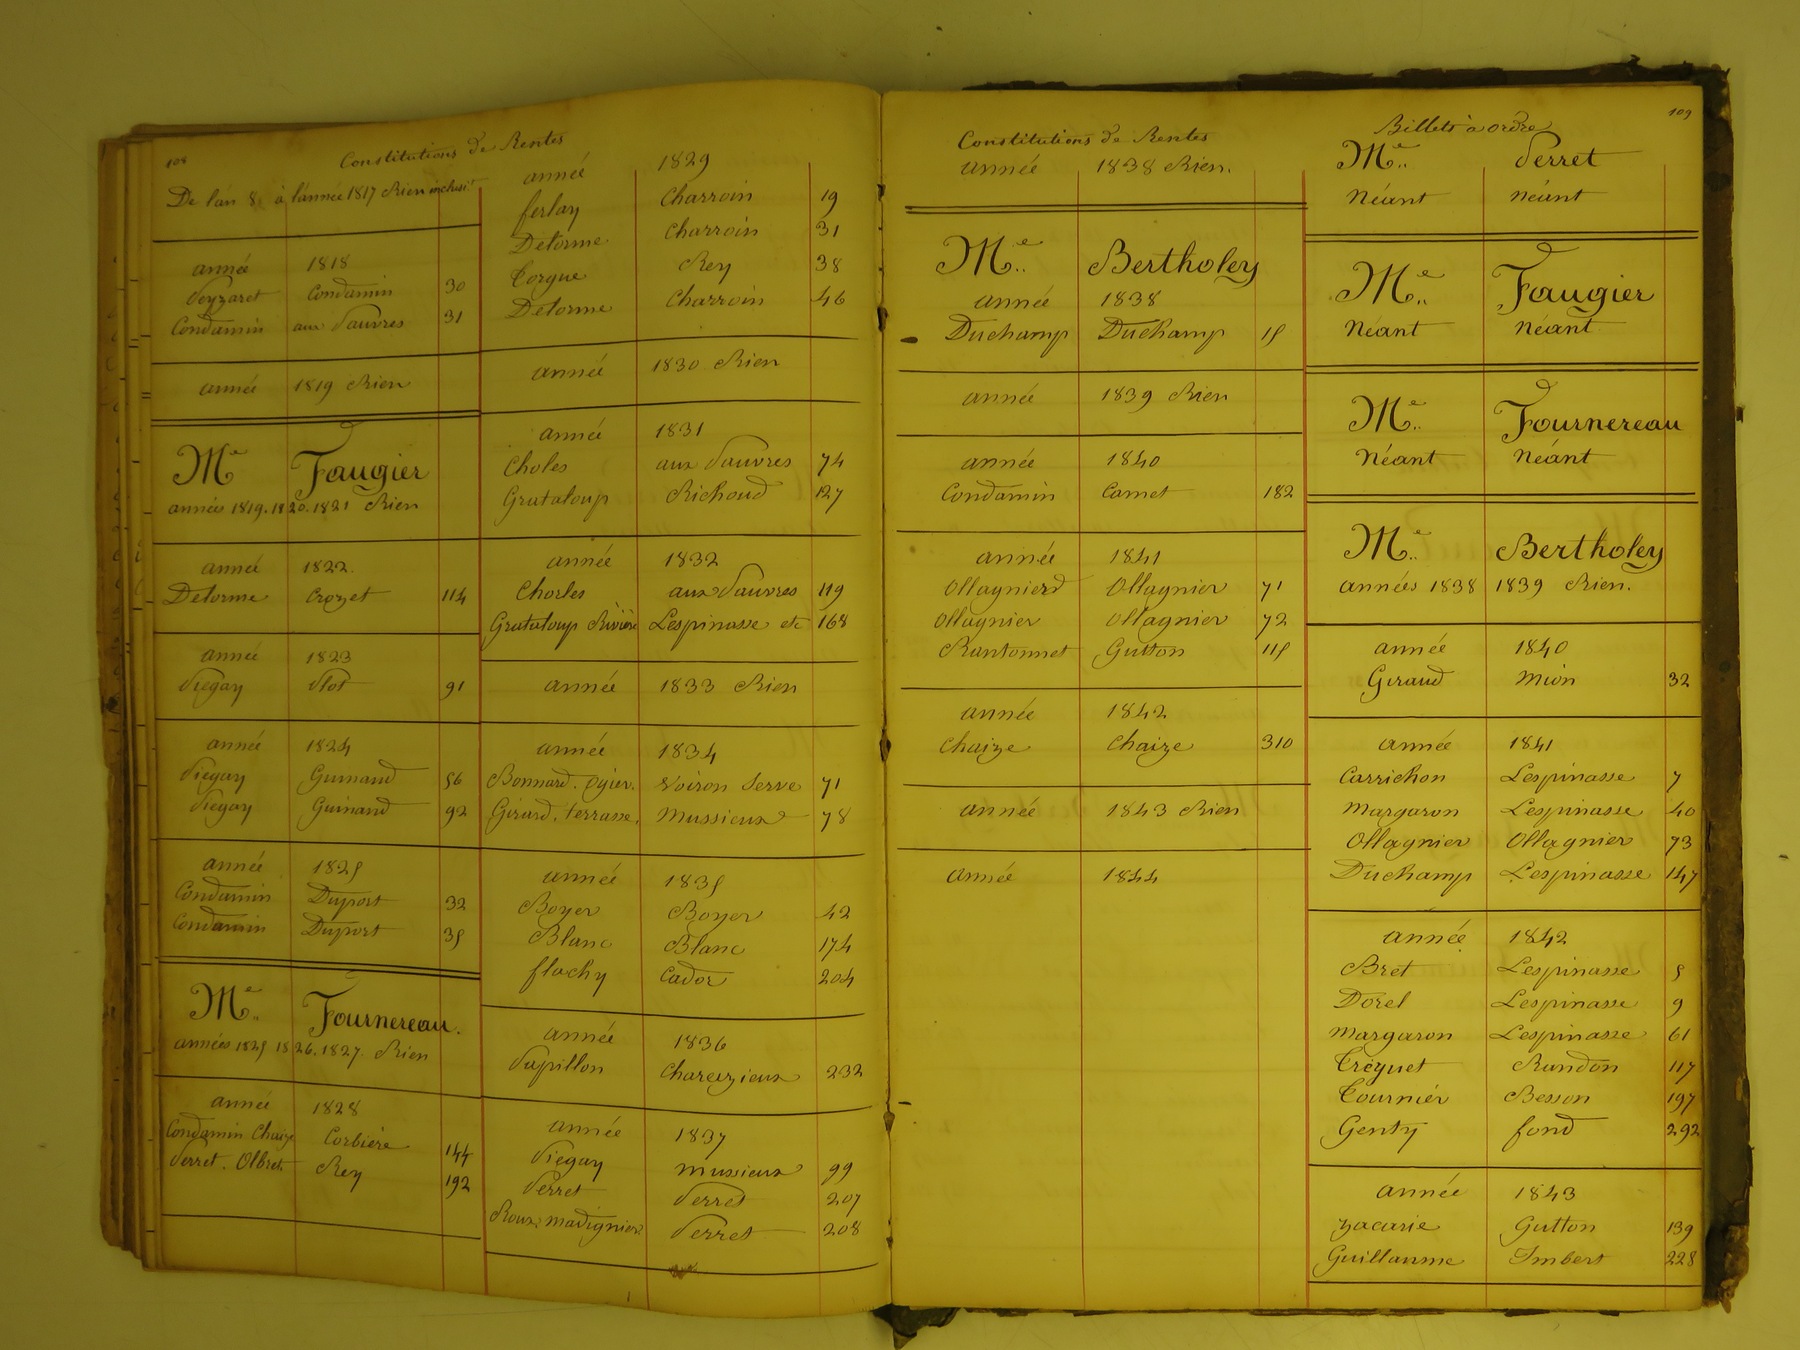 108
Constitutions de Rentes
De l'an 8 à l'année 1817 Rien inclusiv.t
année 1818
Peyzaret Condamin 30
Condamin aux Pauvres 31
année 1819 Rien
Me Faugier
années 1819. 1820. 1821 Rien
année 1822.
Delorme Crozet 114
année 1823
Piegay Plot 91
année 1824
Piegay Guinand 56
Piegay Guinand 92
année 1825
Condamin Duport 32
Condamin Duport 35
Me.. Fournereau.
années 1825 1826. 1827. Rien
année 1828
Condamin Chaize Corbière 144
Perret. Olbret. Rey 192
année 1829
ferlay Charroin 19
Delorme Charroin 31
Corgue Rey 38
Delorme Charroin 46
année 1830 Rien
année 1831
Choles aux Pauvres 74
Grataloup Richoud 127
année 1832
Chorles aux Pauvres 119
Grataloup Rivière Lespinasse etc 168
année 1833 Rien
année 1834
Bonnard. Ogier. Voiron Serve 71
Girard. terrasse. Mussieux 78
année 1835
Boyer Boyer 42
Blanc Blanc 174
flachy Cador 204
année 1836
Papillon Charezieux 232
année 1837
Piegay Mussieux 99
Perret Perret 207
Roux Madignier Perret 208
Constitutions de Rentes
année 1838 Rien.
Me.. Bertholey
année 1838
Duchamp Duchamp 15
année 1839 Rien
année 1840
Condamin Camet 182
année 1841
Ollagnierd Ollagnier 71
Ollagnier Ollagnier 72
Rantonnet Gutton 115
année 1842
Chaize Chaize 310
année 1843 Rien
année 1844
109
Billets à ordre
Me.. Perret
Néant néant
Me.. Faugier
Néant néant
Me.. Fournereau
Néant néant
Me.. Bertholey
années 1838 1839 Rien.
année 1840
Giraud Mion 32
année 1841
Carrichon Lespinasse 7
Margaron Lespinasse 40
Ollagnier Ollagnier 73
Duchamp Lespinasse 147
année 1842
Bret Lespinasse 5
Dorel Lespinasse 9
Margaron Lespinasse 61
Créquet Rundon 117
Tournier Besson 197
Genty fond 292
année 1843
Zacarie Gutton 139
Guillaume Imbert 228